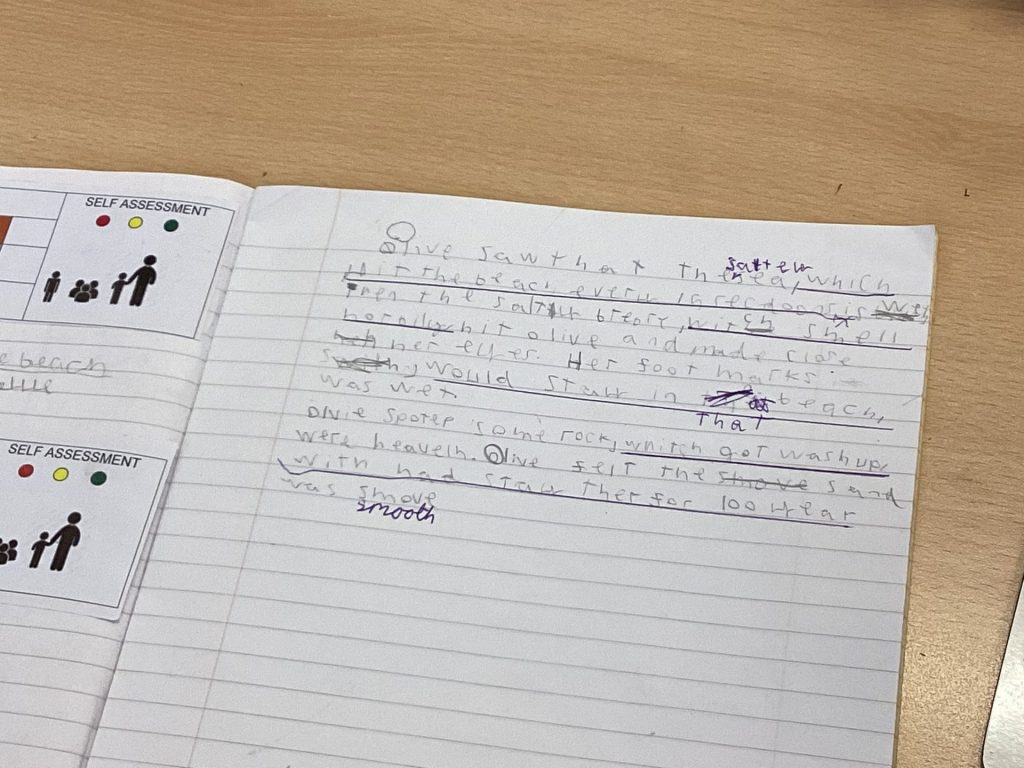 SELF ASSESSMENT
e beach
SELF ASSESSMENT
Olive saw that the sea, which
hit the beach every is
Then the breary, witch smell
horally hit olive and made close
her eyes. Her foot marks
would stay in that beach,
was wet
Olvie spotep some rock, whitch got wash up,
were heaveln. Olive felt the smove sand
with had stay ther for 100 year
was smove
smooth